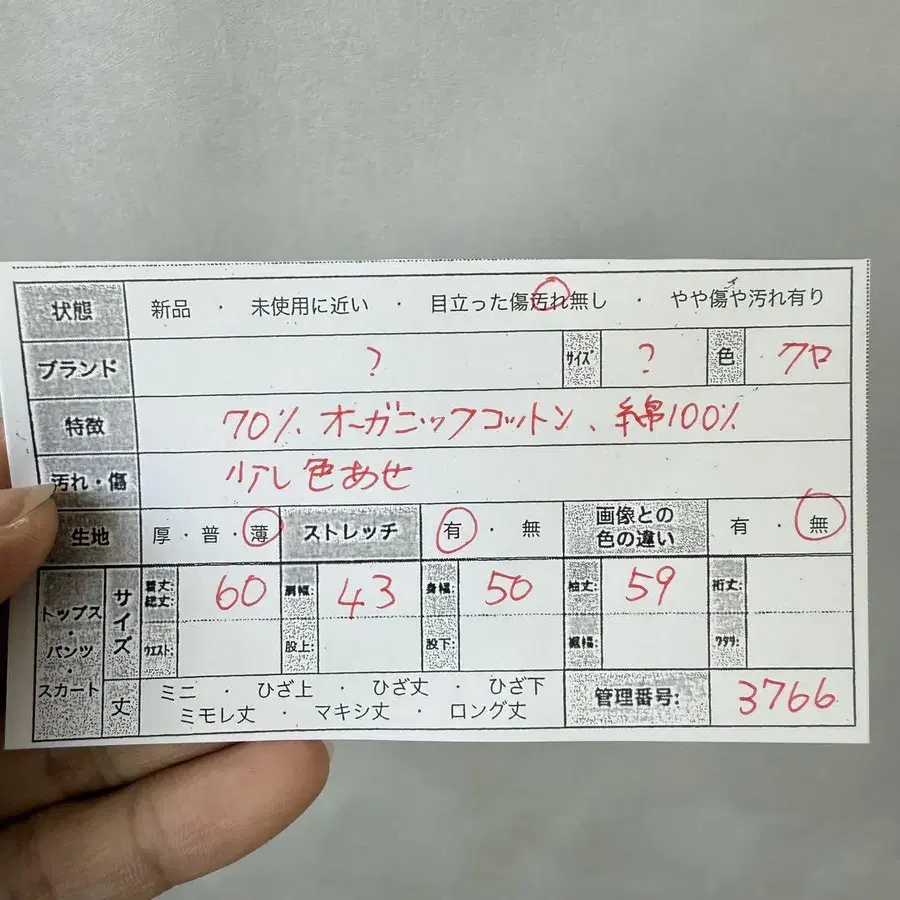 状態 新品 ・ 未使用に近い ・ 目立った傷汚れ無し ・ やや傷や汚れ有り
ブランド ? サイズ ? 色 クロ
特徴 70% オーガニックコットン、綿100%
汚れ・傷 少し色あせ
生地 厚・普・薄 ストレッチ 有 ・ 無 画像との色の違い 有 ・ 無
トップス・パンツ・スカート サイズ 着丈総丈: 60 肩幅: 43 身幅: 50 袖丈: 59 裄丈:
ウエスト: 股上: 股下: 裾幅: ワタリ:
丈 ミニ ・ ひざ上 ・ ひざ丈 ・ ひざ下
ミモレ丈 ・ マキシ丈 ・ ロング丈
管理番号: 3766